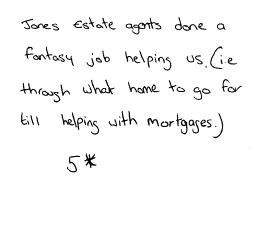 Jones Estate agents done a
fantasy job helping us. (i.e
through what home to go for
till helping with mortgages.)
5*